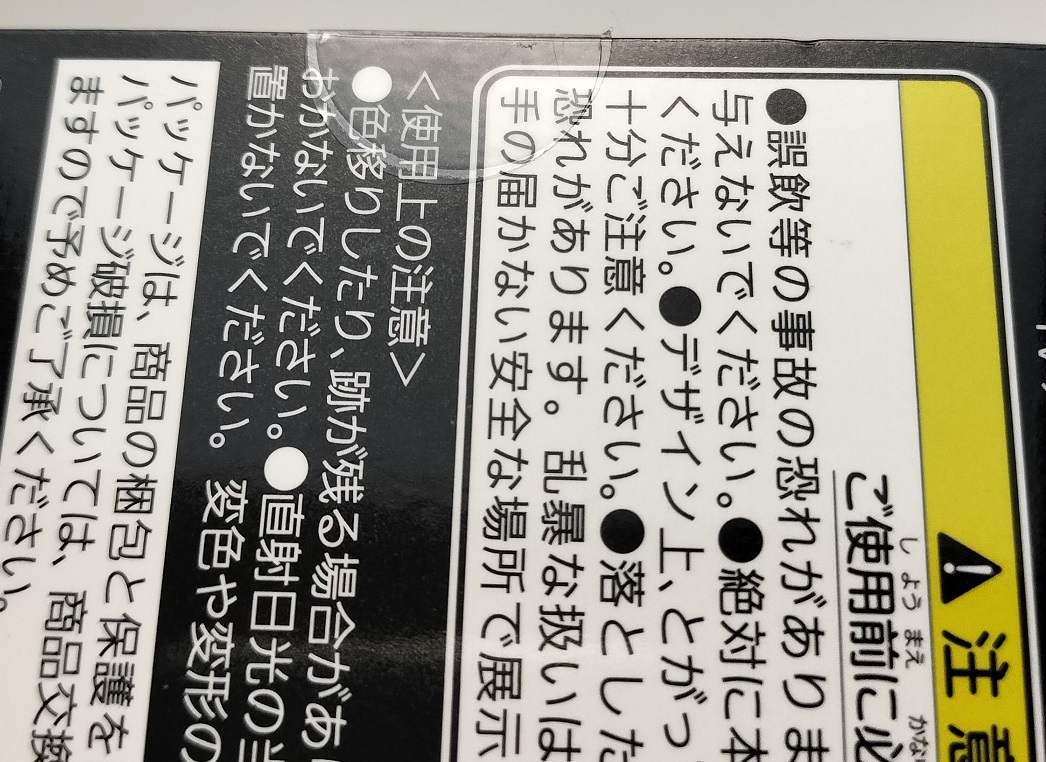 注意
しょう まえ かな
ご使用前に必
●誤飲等の事故の恐れがありま
与えないでください。●絶対に本
ください。●デザイン上、とがっ
十分ご注意ください。●落とした
恐れがあります。乱暴な扱いは
手の届かない安全な場所で展示
<使用上の注意>
●色移りしたり、跡が残る場合があ
おかないでください。●直射日光の
置かないでください。変色や変形の
パッケージは、商品の梱包と保護を
パッケージ破損については、商品交換
ますので予めご了承ください。